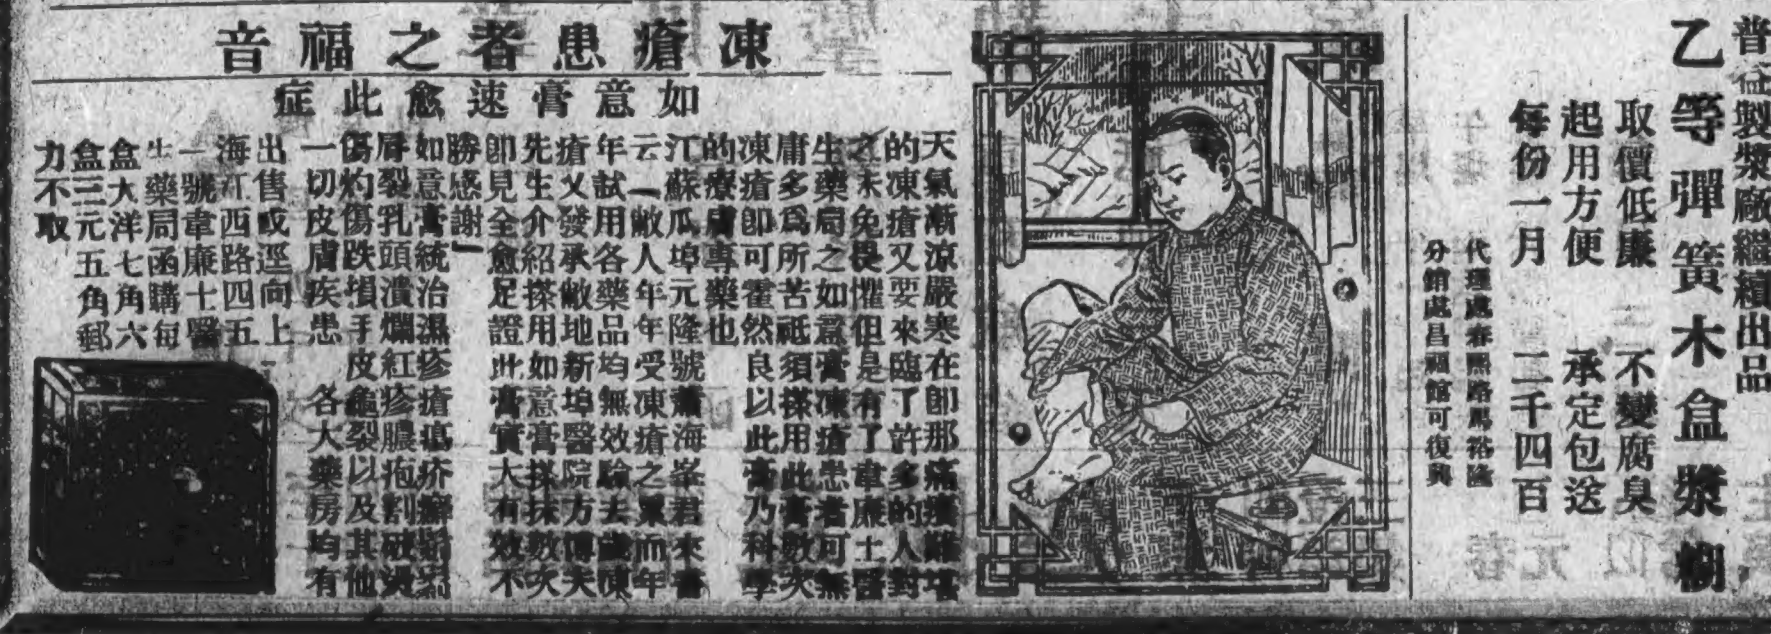 普益製漿廠繼續出品
乙等彈簧木盒漿糊
取價低廉 不變腐臭
起用方便 承定包送
每份一月 二千四百
代理處春熙路馬裕隆
分館處昌福館可復興
凍瘡患者之福音
如意膏速愈此症
天氣漸涼嚴寒在卽那痛癢難堪
的凍瘡又要來臨了許多的人對
之未免畏懼但是有了韋廉士醫
生藥局之如意膏凍瘡患者可無
庸多爲所苦祗須搽用此膏數次
凍瘡卽可霍然良以此膏乃科學
的療膚專藥也
江蘇瓜埠元隆號蕭海峯君來書
云「敝人年年受凍瘡之累而年
年試用各藥品均無效驗去歲凍
瘡又發承敝地新埠醫院方傅夫
先生介紹搽用如意膏搽抹數次
卽見全愈足證此膏實大有效不
勝感謝」
如意膏統治濕疹瘡瘋疥癬
唇裂乳頭潰爛紅疹膿疱割破燙
傷灼傷跌損手皮龜裂以及其他
一切皮膚疾患 各大藥房均有
出售或逕向上
海江西路四五
一號韋廉士醫
生藥局函購每
盒大洋七角六
盒三元五角郵
力不取